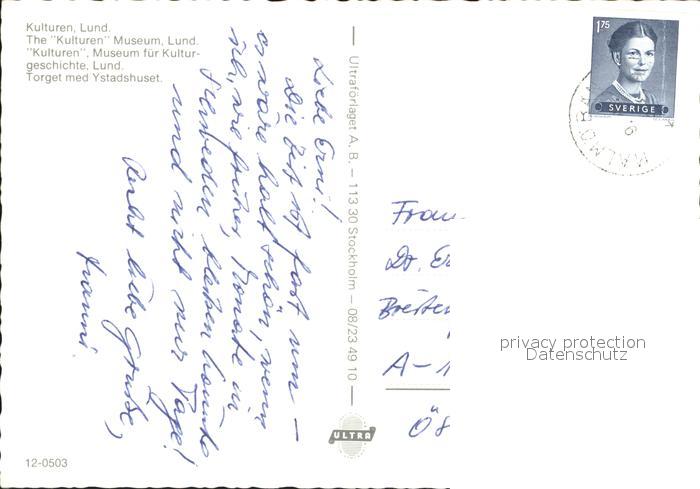 Kulturen, Lund.
The "Kulturen" Museum, Lund.
"Kulturen", Museum für Kultur-
geschichte, Lund.
Torget med Ystadshuset.
Liebe Erni!
Die Zeit ist fast um –
es wäre halt schön, wenn
ich, wie früher, Monate in
Schweden bleiben könnte
und nicht nur Tage!
Recht liebe Grüße,
Hanni.
Ultraförlaget A.B. – 113 30 Stockholm – 08/23 49 10
ULTRA
12-0503
175
SVERIGE
MALMÖ
6
Frau
Dr. Er
Breiten
A-1
Ös
privacy protection
Datenschutz